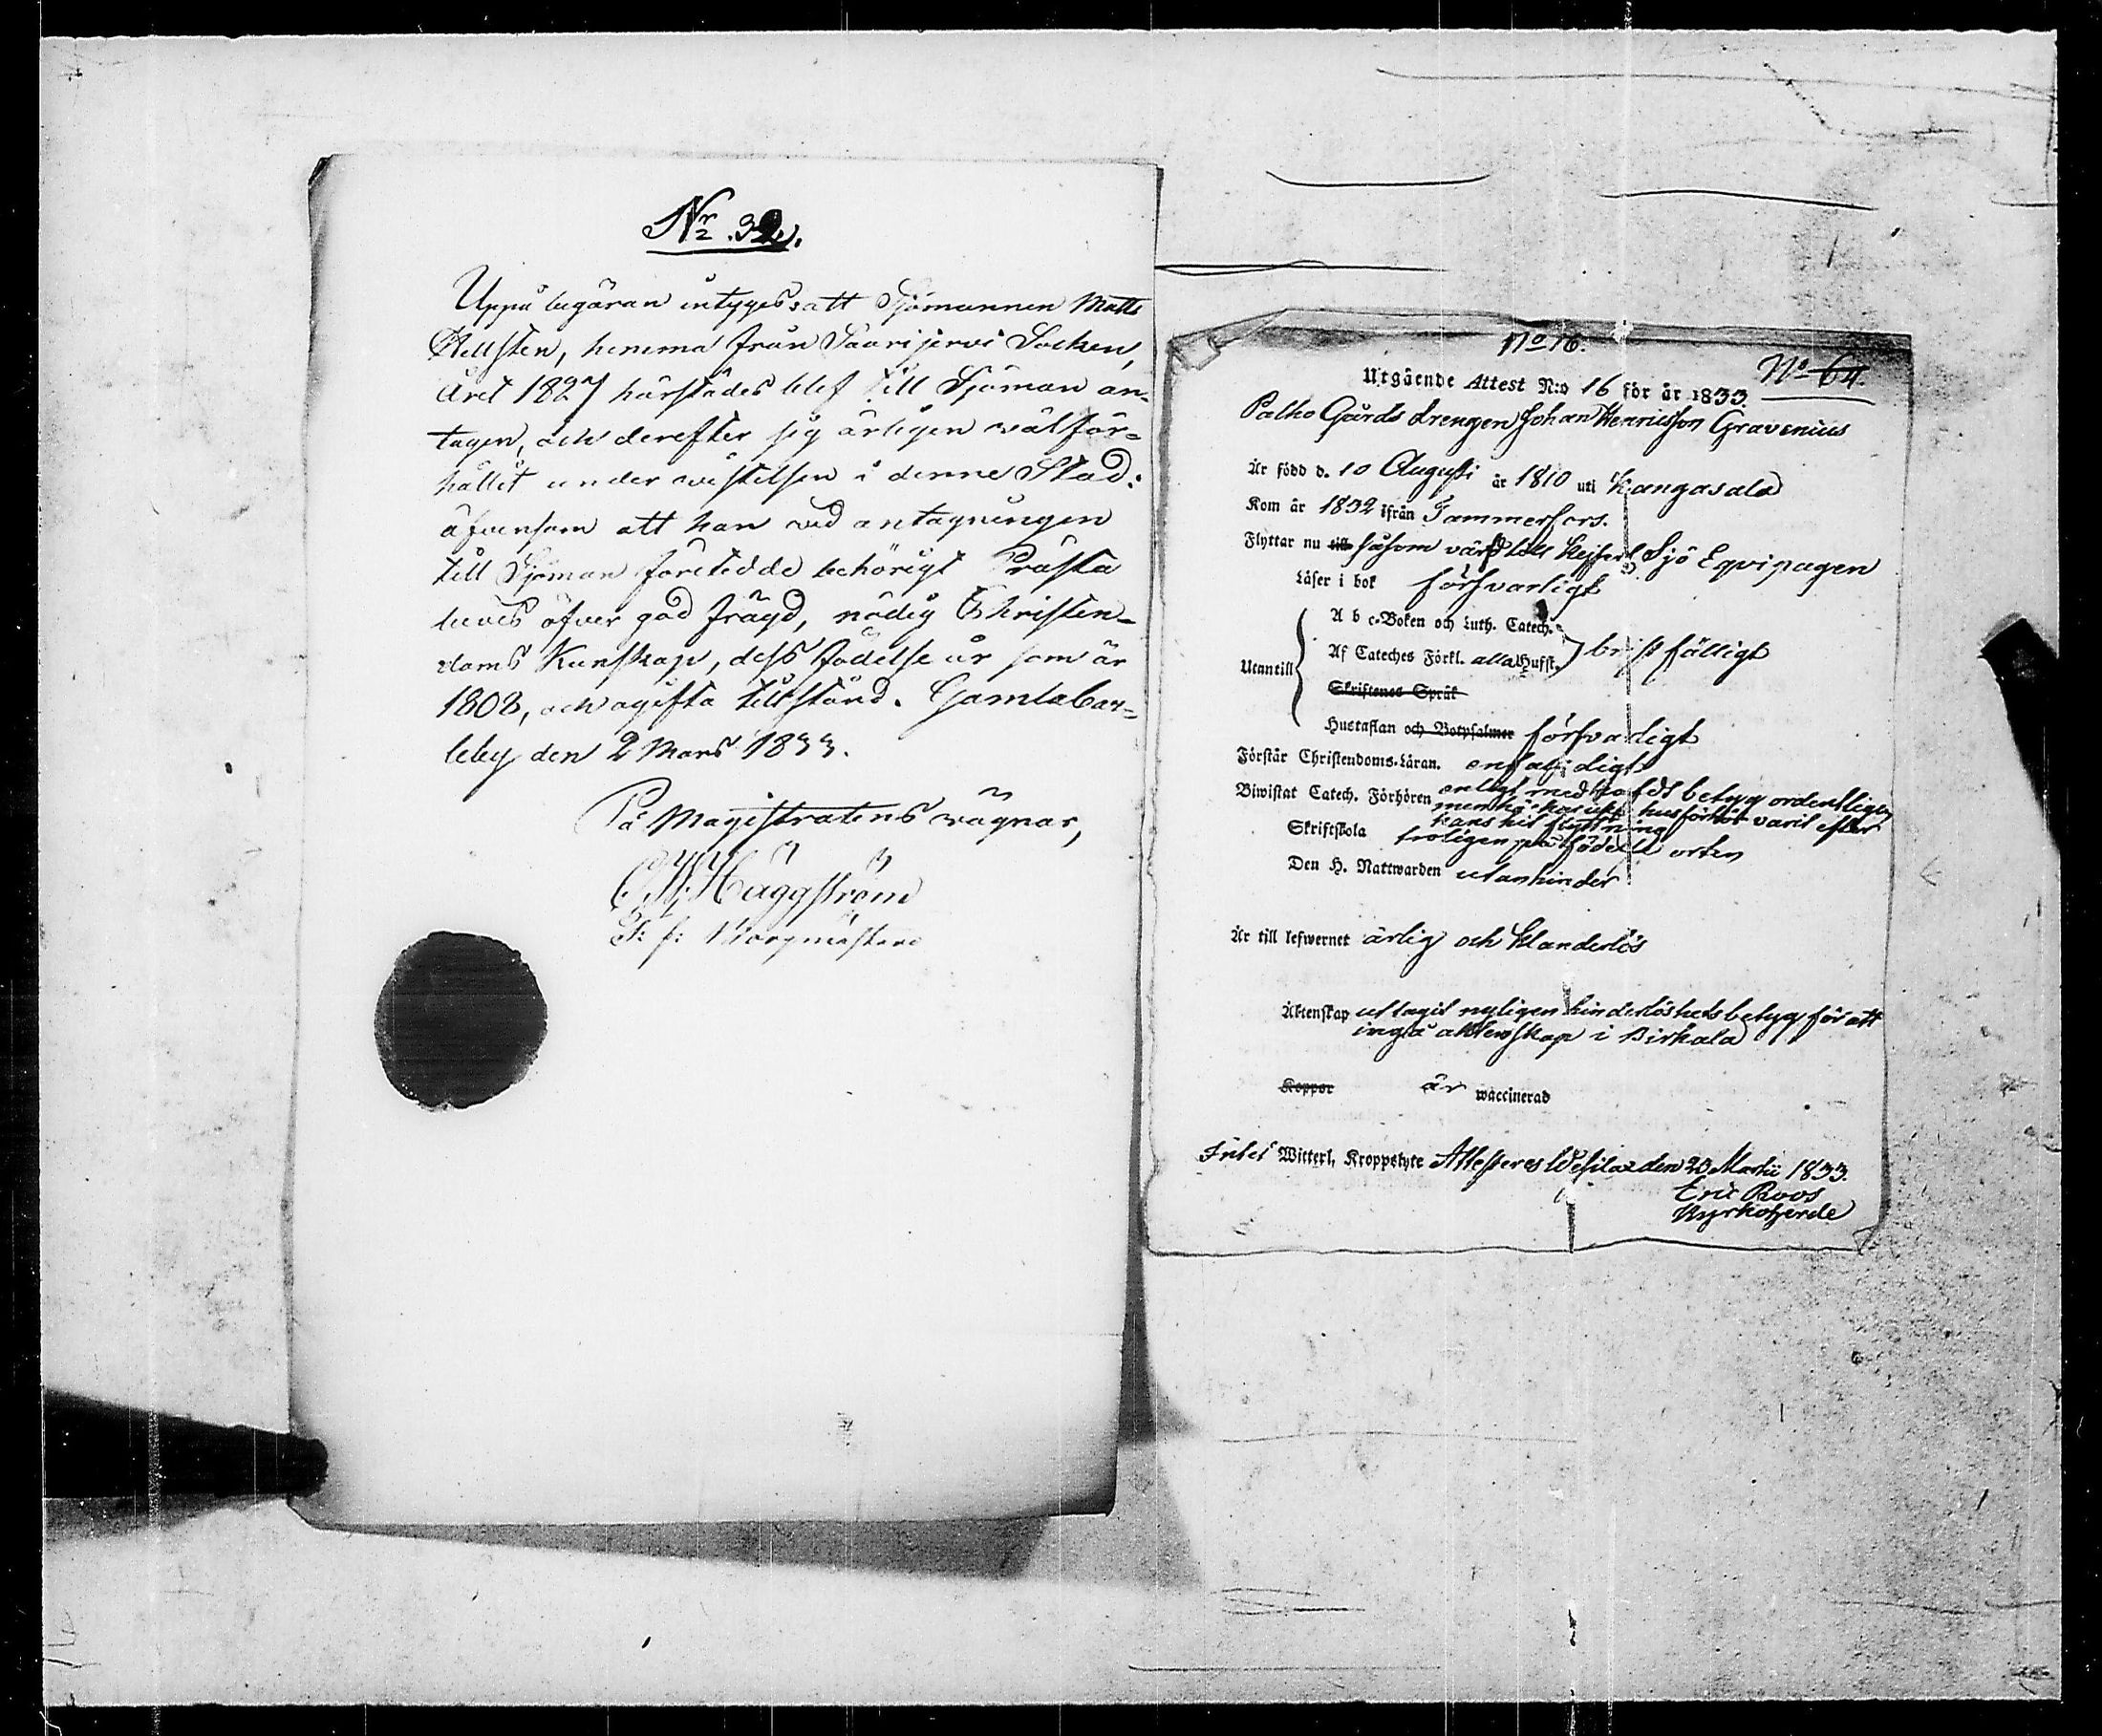 Nr. 32.
Uppå begäran intygas att Sjömannen Matts
Hellsten, hemma från Saarijervi Socken,
året 1827 härstädes blef till Sjöman an-
tagen, och derefter sig ärligen wälför-
hållit under wistelsen i denne Stad:
äfvensom att han wid antagningen
till Sjöman företedde behörigt Prästa
bevis öfver god frägd, nödig Christen-
doms Kunskap, dess födelse år som är
1808, och ogifta tillstånd. Gamlacar-
leby den 2 Mars 1833.
På Magistratens wägnar,
Häggström
T: f: Borgmästare
No 16.
No 64.
Utgående Attest N:o 16 för år 1833.
Palho Gårds drengen Johan Henricsson Gravenius
Är född d. 10 Augusti år 1810 uti Kangasala
Kom år 1832 ifrån Tammerfors.
Flyttar nu till såsom till Kejserl. Sjö Eqvipagen
Läser i bok försvarligt
A b c-Boken och Luth. Catech.
Af Cateches Förkl. alla Hufst. bristfälligt
Utantill
Skriftenes Språk
Hustaflan och Botpsalmer försvarligt
Förstår Christendoms-Läran. enfaldigt
Biwistat Catech. Förhören enligt med betyg ordentligen
men här har icke husförhör varit efter
hans hit flyttning
Skriftskola troligen på födelse orten
Den H. Nattwarden utan hinder
Är till lefwernet ärlig och klanderlös
Äktenskap uttagit nyligen hinderlöshetsbetyg för att
ingå äktenskap i Birkala
Koppor är waccinerad
Intet Witterl. Kroppslyte Attesteras Wesilax den 23 Martii 1833.
Eric Roos
Kyrkoherde